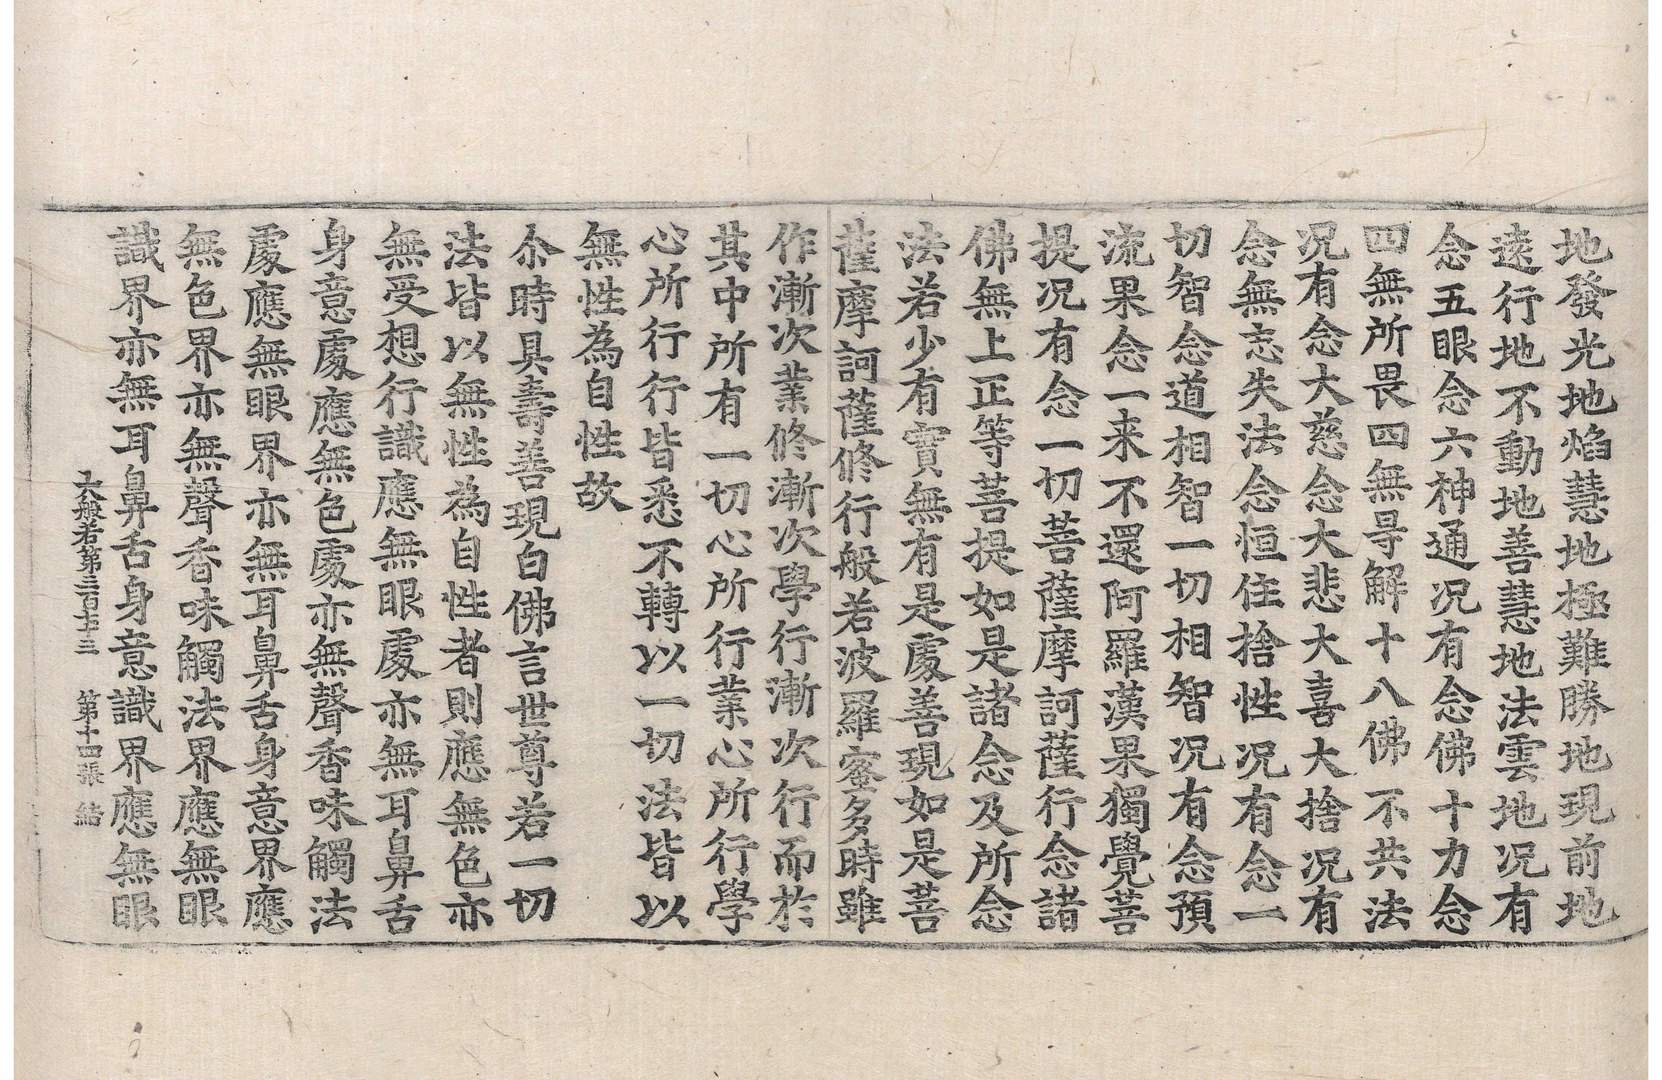 地發光地焰慧地極難勝地現前地
遠行地不動地善慧地法雲地况有
念五眼念六神通况有念佛十力念
四無所畏四無㝵解十八佛不共法
况有念大慈念大悲大喜大捨况有
念無忘失法念恒住捨性况有念一
切智念道相智一切相智况有念預
流果念一来不還阿羅漢果獨覺菩
提况有念一切菩薩摩訶薩行念諸
佛無上正等菩提如是諸念及所念
法若少有實無有是處善現如是菩
薩摩訶薩修行般若波羅蜜多時雖
作漸次業修漸次學行漸次行而於
其中所有一切心所行業心所行學
心所行行皆悉不轉以一切法皆以
無性為自性故
尒時具壽善現白佛言世尊若一切
法皆以無性為自性者則應無色亦
無受想行識應無眼處亦無耳鼻舌
身意處應無色處亦無聲香味觸法
處應無眼界亦無耳鼻舌身意界應
無色界亦無聲香味觸法界應無眼
識界亦無耳鼻舌身意識界應無眼
大般若第三百七十三 第十四張 結